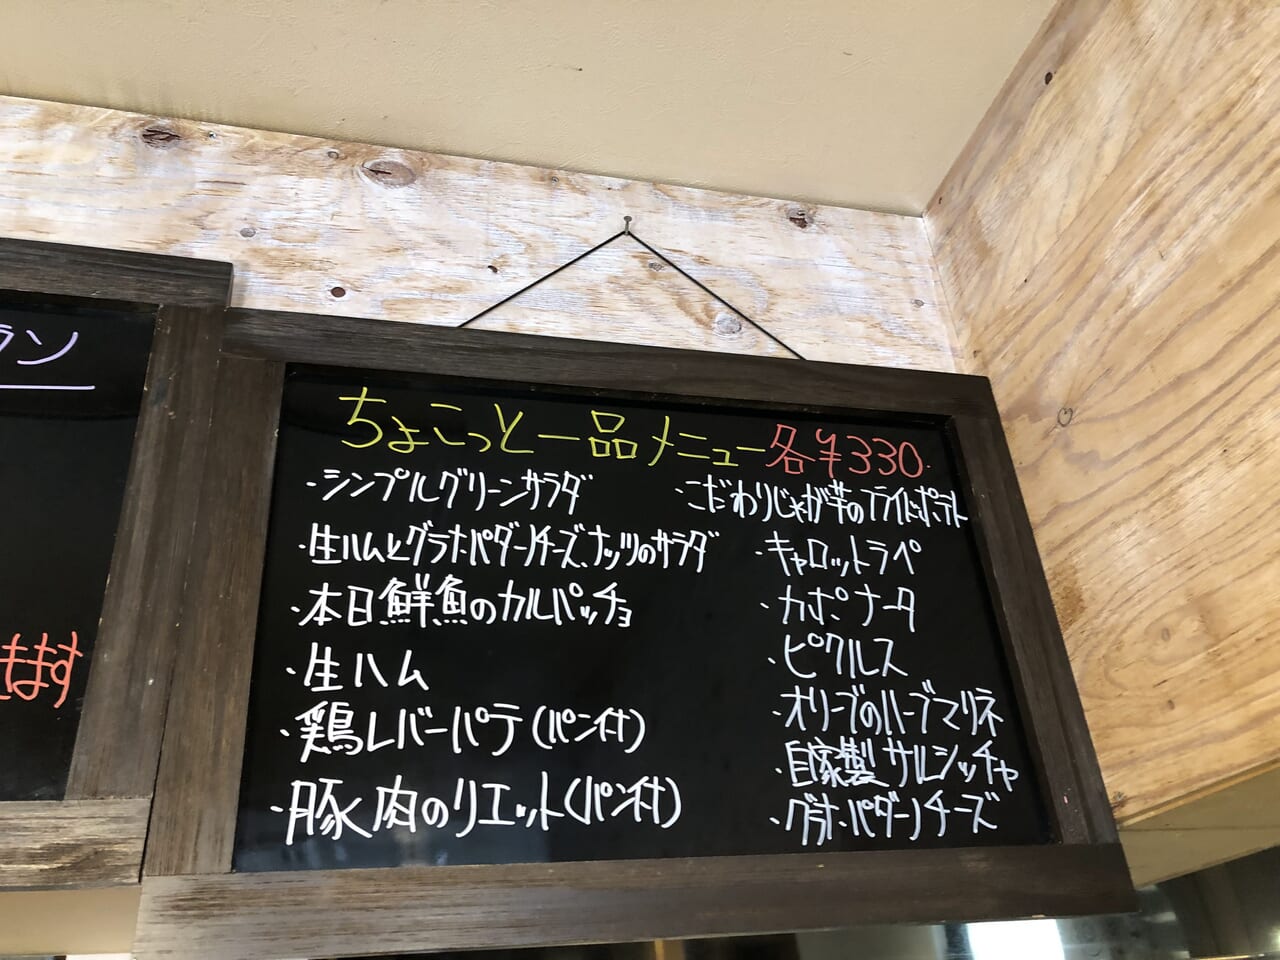 ラン
きます
ちょこっと一品メニュー各¥330.
・シンプルグリーンサラダ
・生ハムとグラナ・パダーノチーズ、ナッツのサラダ
・本日鮮魚のカルパッチョ
・生ハム
・鶏レバーパテ(パン付)
・豚肉のリエット(パン付)
・こだわりじゃが芋のフライドポテト
・キャロットラペ
・カポナータ
・ピクルス
・オリーブのハーブマリネ
・自家製サルシッチャ
・グラナ・パダーノチーズ